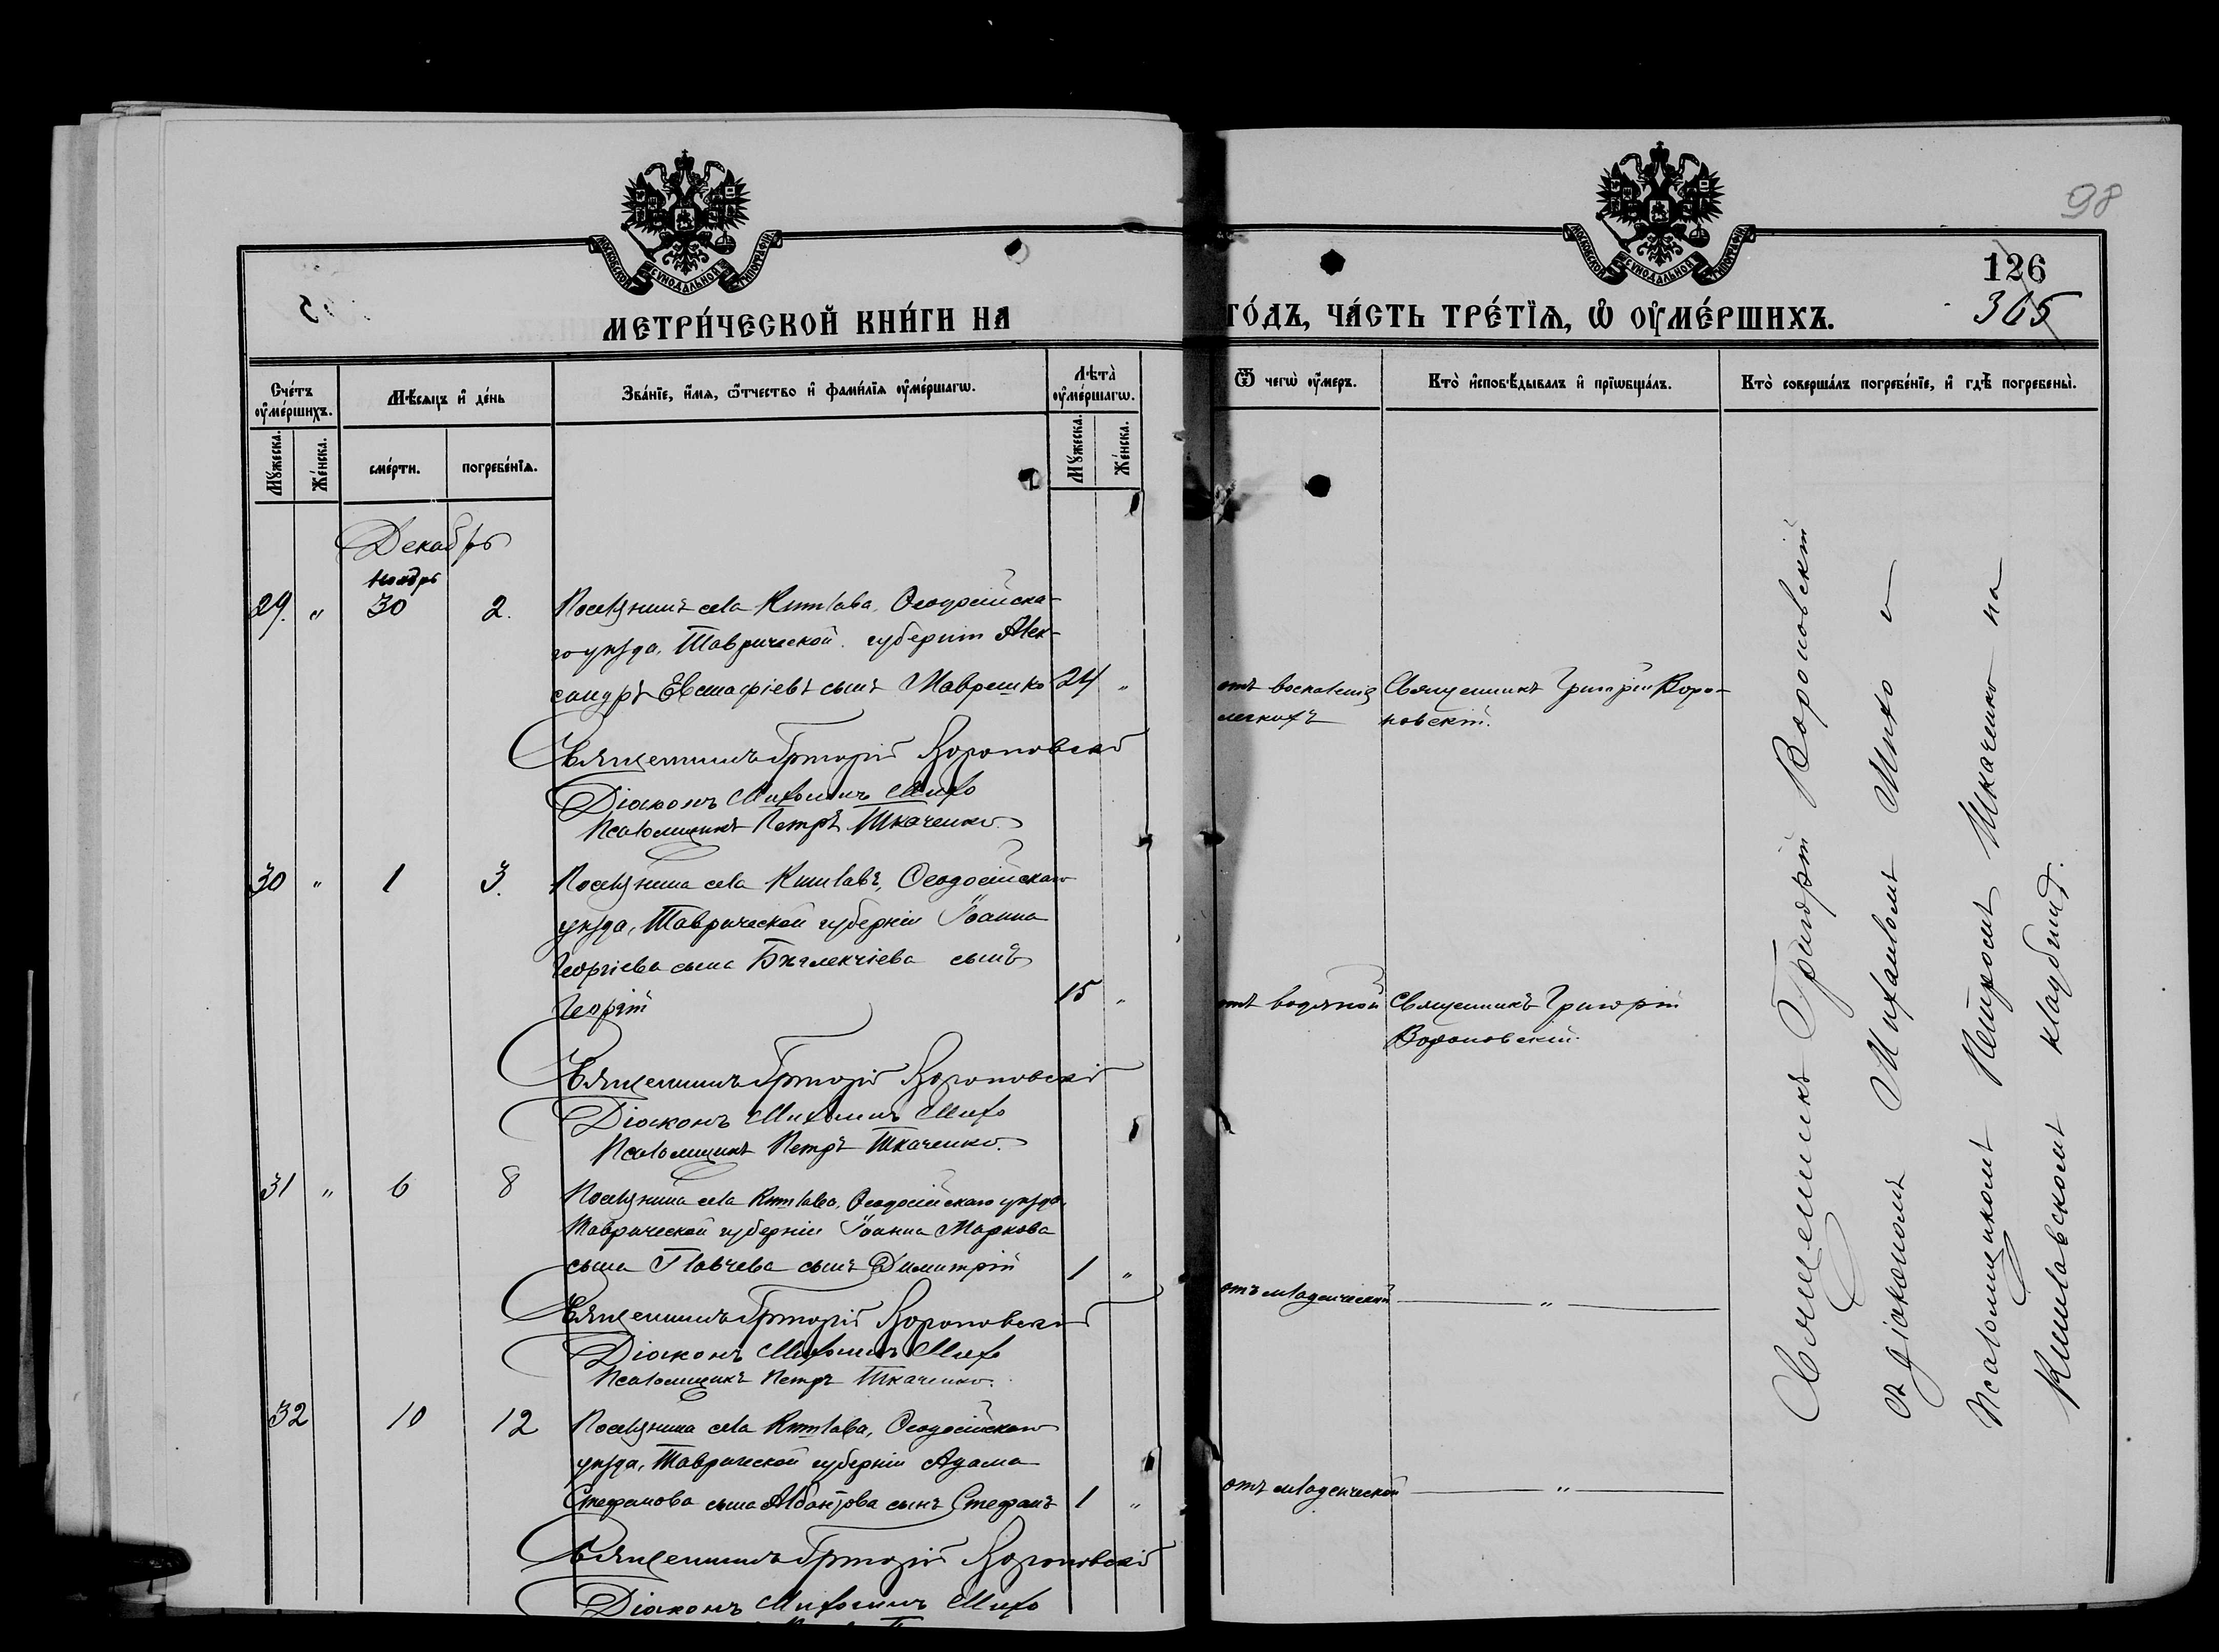 98
126
365
МОСКОВСКОЙ СѴНОДАЛЬНОЙ ТИПОГРАФІИ
МОСКОВСКОЙ СѴНОДАЛЬНОЙ ТИПОГРАФІИ
МЕТРИ́ЧЕСКОЙ КНИ́ГИ НА ГО́ДЪ, ЧА́СТЬ ТРЕ́ТЇѦ, Ѡ҆ ОУ҆МЕ́РШИХЪ.
Сче́тъ оу҆ме́ршихъ.
Мѣ́сѧцъ и҆ де́нь
Зва́нїе, и҆́мѧ, ѻ҆́тчество и҆ фами́лїѧ оу҆ме́ршагѡ.
Лѣ́та оу҆ме́ршагѡ.
Ѿ чегѡ̀ оу҆́меръ.
Кто̀ и҆сповѣ́дывалъ и҆ прїѡбща́лъ.
Кто̀ соверша́лъ погребе́нїе, и҆ гдѣ̀ погребены̀.
Мꙋ́жеска.
Же́нска.
сме́рти.
погребе́нїѧ.
Мꙋ́жеска.
Же́нска.
Декабрь
Ноябрь
29. " 30 2. Поселянинъ села Кишлава, Ѳеодосійска-
го уѣзда, Таврической губерніи Алек-
сандръ Евстафіевъ сынъ Мавренко 24 " отъ воспаленія Священникъ Григорій Воро-
легкихъ новскій.
Священникъ Григорій Вороновскій
Діаконъ Михаилъ Михо
Псаломщикъ Петръ Ткаченко.
30 " 1 3. Поселянина села Кишлавъ, Ѳеодосійскаго
уѣзда, Таврической губерніи Іоанна
Георгіева сына сынъ
Георгій 15 " отъ водяной Священникъ Григорій
Вороновскій.
Священникъ Григорій Вороновскій
Діаконъ Михаилъ Михо
Псаломщикъ Петръ Ткаченко.
31 " 6 8 Поселянина села Кишлава, Ѳеодосійскаго уѣзда,
Таврической губерніи Іоанна Маркова
сына Главчева сынъ Димитрій 1 " отъ младенческой "
Священникъ Григорій Вороновскій
Діаконъ Михаилъ Михо
Псаломщикъ Петръ Ткаченко.
32 10 12 Поселянина села Кишлава, Ѳеодосійскаго
уѣзда, Таврической губерніи Адама
Стефанова сына сынъ Стефанъ 1 " отъ младенческой "
Священникъ Григорій Вороновскій
Діаконъ Михаилъ Михо
Священникъ Григорій Вороновскій
съ діакономъ Михаиломъ Михо и
Псаломщикомъ Петромъ Ткаченко на
Кишлавскомъ кладбищѣ.